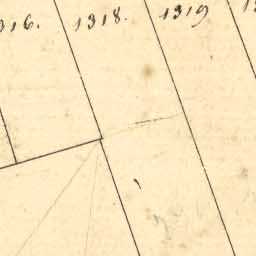 1318.
1319